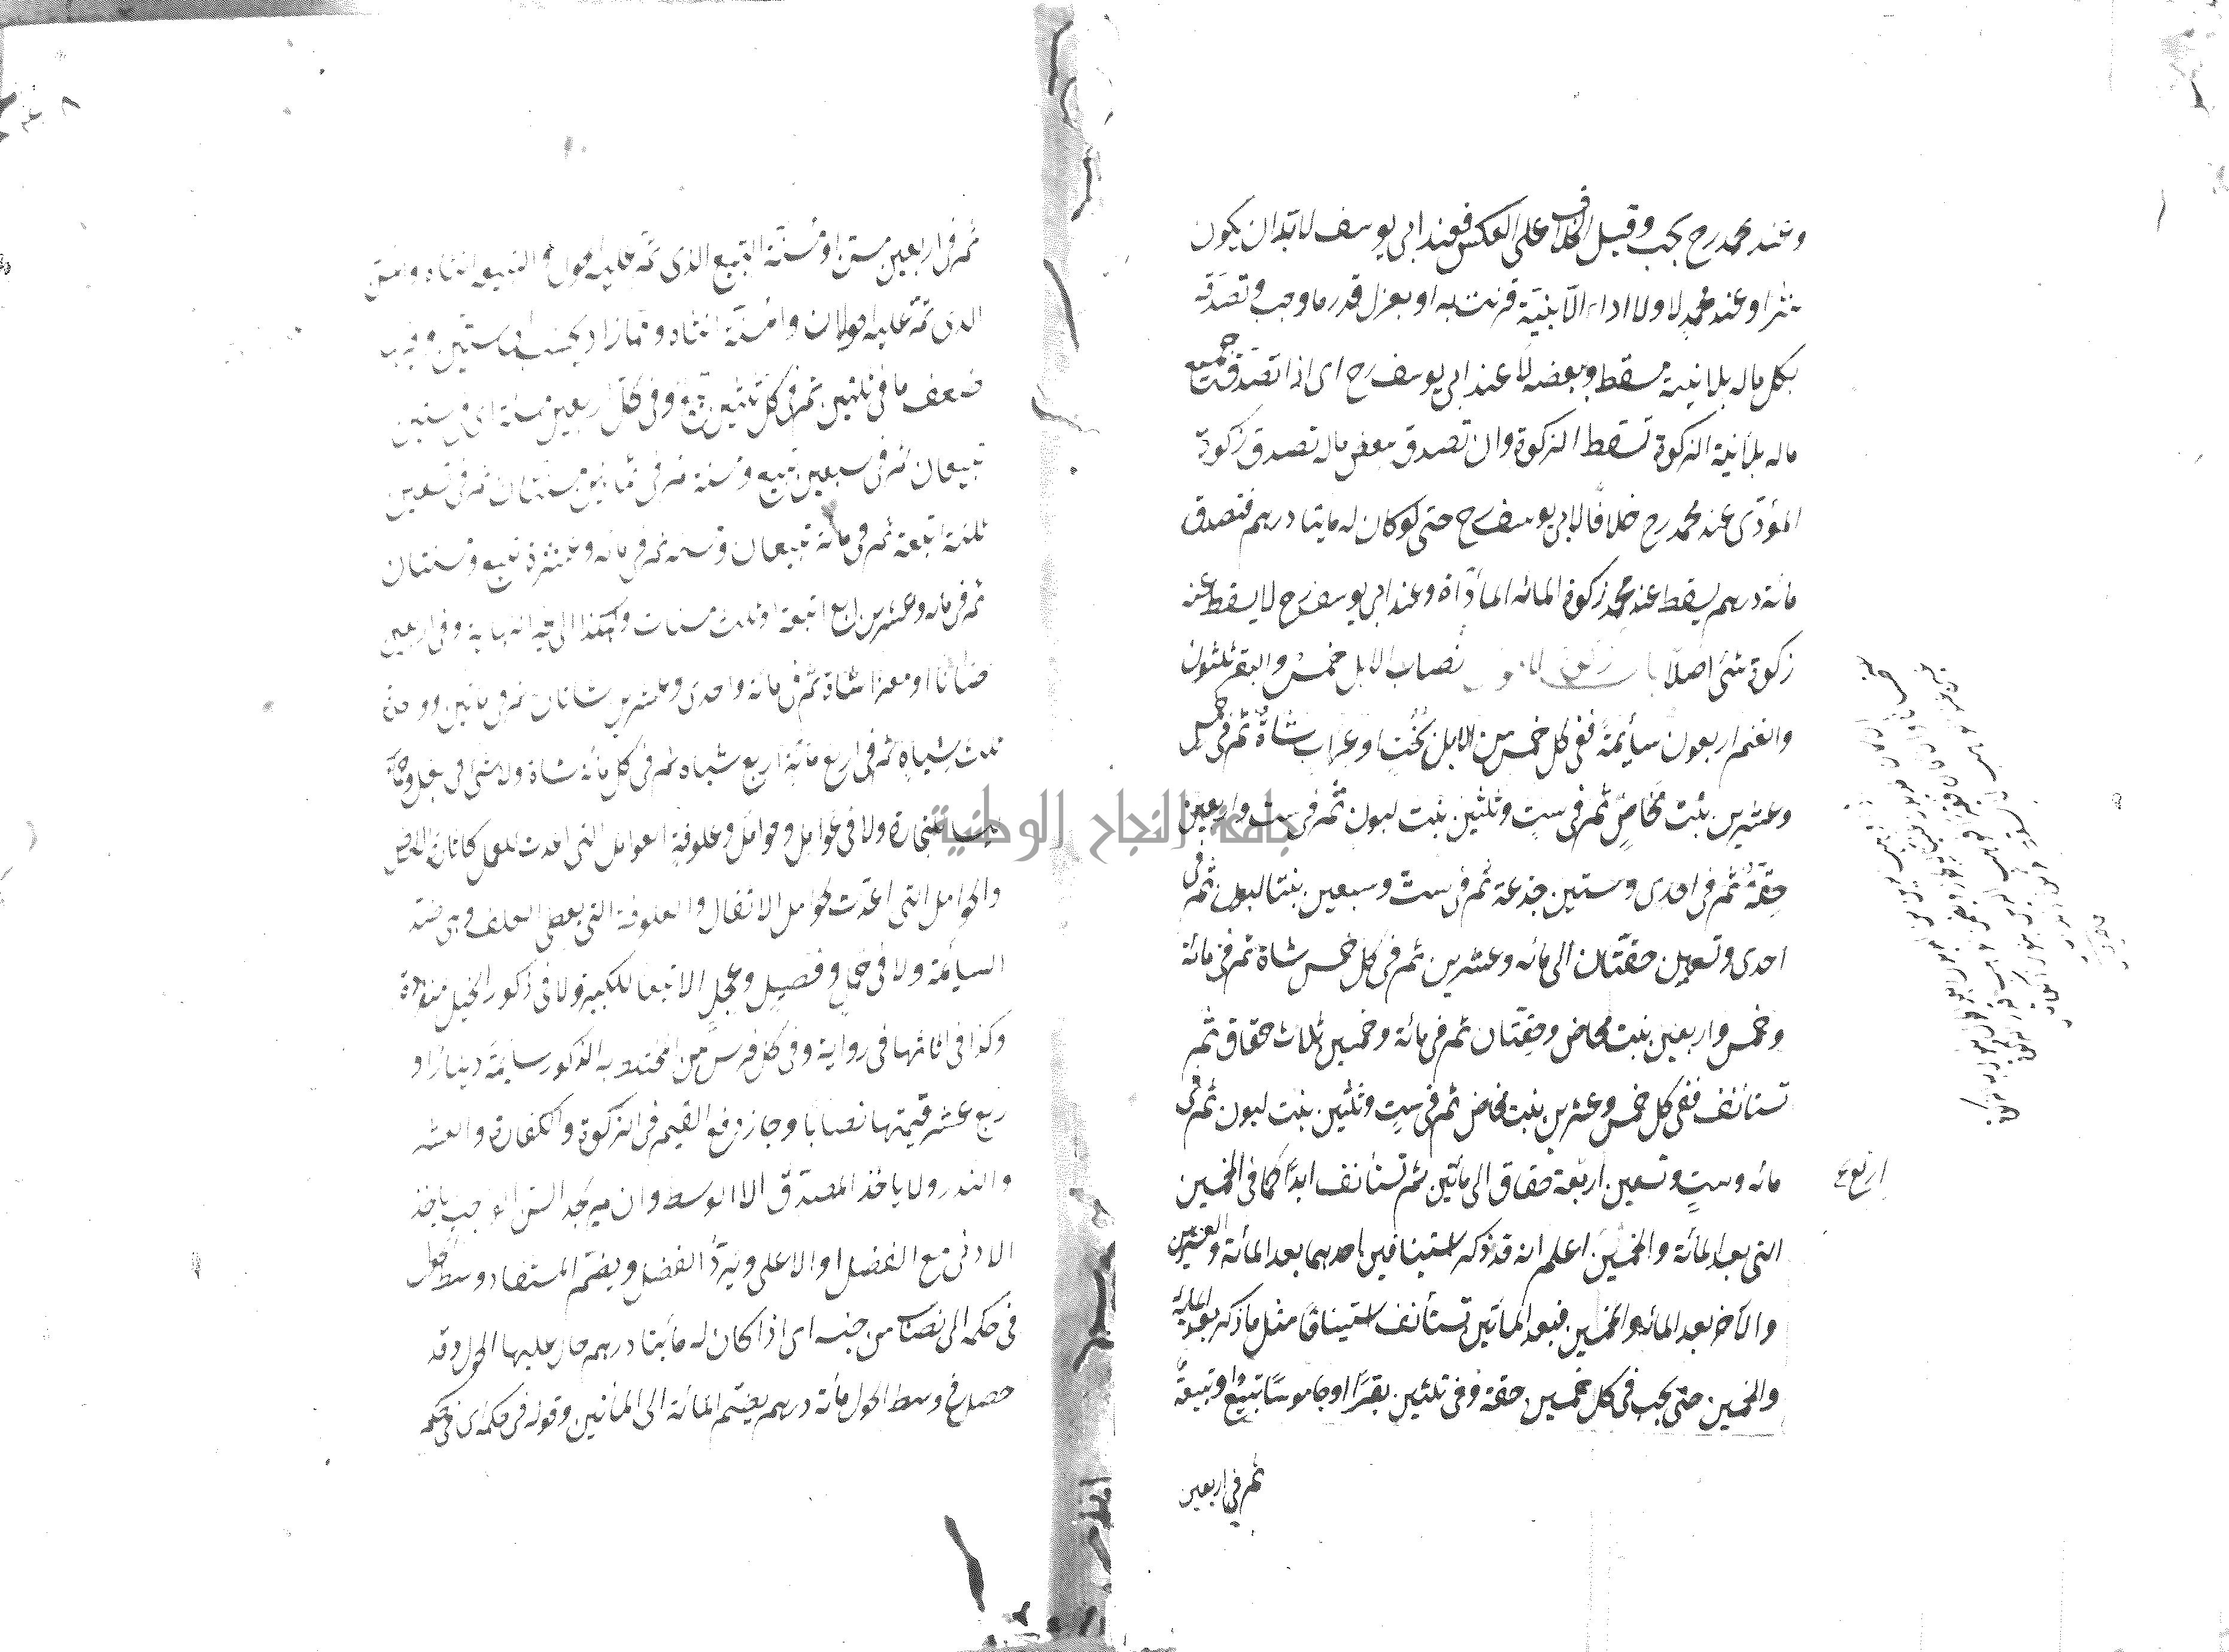 وعند محمد رح يجب وقيل الخلاف على العكس فعند ابى يوسف لا بد ان يكون
نثرا وعند محمد لا ولا اداء الا بنية قرنت به او بعزل قدر ما وجب وتصدقه
بكل ماله بلا نية مسقط وببعضه لا عند ابى يوسف رح اى اذا تصدقت جميع
ماله بلا نية الزكوة تسقط الزكوة وان تصدق ببعض ماله تصدق زكوة
المؤدى عند محمد رح خلافا لابى يوسف رح حتى لو كان له مايتا درهم فتصدق
مائة درهم يسقط عند محمد زكوة المائة المأداة وعند ابى يوسف رح لا يسقط عنه
زكوة شئ اصلا باب زكوة نصاب الابل خمس والبقر ثلثون
والغنم اربعون سائمة ففى كل خمس من الابل بخت او عراب شاة ثم فى خمس
وعشرين بنت مخاض ثم فى ست وثلثين بنت لبون ثم فى ست واربعين
حقة ثم فى احدى وستين جذعة ثم فى ست وسبعين بنتا لبون ثم فى
احدى وتسعين حقتان الى مائة وعشرين ثم فى كل خمس شاة ثم فى مائة
وخمس واربعين بنت مخاض وحقتان ثم فى مائة وخمسين ثلاث حقاق ثم
تستأنف ففى كل خمس وعشرين بنت مخاض ثم فى ست وثلثين بنت لبون ثم فى
مائة وست وتسعين اربعة حقاق الى مأتين ثم تستأنف ابدا كما فى الخمسين
التى بعد المائة والخمسين اعلم انه قد ذكر استينافين احدهما بعد المائة والعشرين
والآخر بعد المائة والخمسين فبعد المأتين تستأنف استينافا مثل ما ذكر بعد المائة
والخمسين حتى يجب فى كل خمسين حقة وفى ثلثين بقرا او جاموسا تبيع او تبيعة
ثم فى اربعين
اربع
ثم فى اربعين مسن او مسنة التبيع الذى تم عليه حول والتبيعة انثاه والمسن
الذى تم عليه حولان والمسنة انثاه وفيما زاد يحسب الى ستين وفيها
ضعف ما فى ثلثين ثم فى كل ثلثين تبيع وفى كل اربعين مسنة اى فى ستين
تبيعان ثم فى سبعين تبيع ومسنة ثم فى ثمانين مسنتان ثم فى تسعين
ثلثة اتبعة ثم فى مائة تبيعان ومسنة ثم فى مائة وعشرة تبيع ومسنتان
ثم فى مائة وعشرين اربع اتبعة او ثلث مسنات وهكذا الى غير النهاية وفى اربعين
ضأنا او معزا شاة ثم فى مائة واحدى وعشرين شاتان ثم فى مأتين وواحدة
ثلث شياه ثم فى اربع مائة اربع شياه ثم فى كل مائة شاة ولا شئ فى بغل وحمار
ليسا للتجارة ولا فى عوامل وحوامل وعلوفة العوامل التى اعدت للعمل كاثارة الارض
والحوامل التى اعدت لحمل الاثقال والعلوفة التى يعطى العلف وهى ضد
السائمة ولا فى حمل وفصيل وعجل الا تبعا للكبير ولا فى ذكور الخيل منفردة
وكذا فى اناثها فى رواية وفى كل فرس من المختلط به الذكور سائمة دينار او
ربع عشر قيمتها نصابا وجاز دفع القيم فى الزكوة والكفارة والعشر
والنذر ولا ياخذ المصدق الا الوسط وان لم يجد السن الواجب ياخذ
الادنى مع الفضل او الاعلى ويرد الفضل ويضم المستفاد وسط حول
فى حكمه الى نصاب من جنسه اى اذا كان له مأيتا درهم حال عليها الحول وقد
حصل فى وسط الحول مائة درهم يضم المائة الى المأتين وقوله فى حكمه اى فى حكم
جامعة النجاح الوطنية